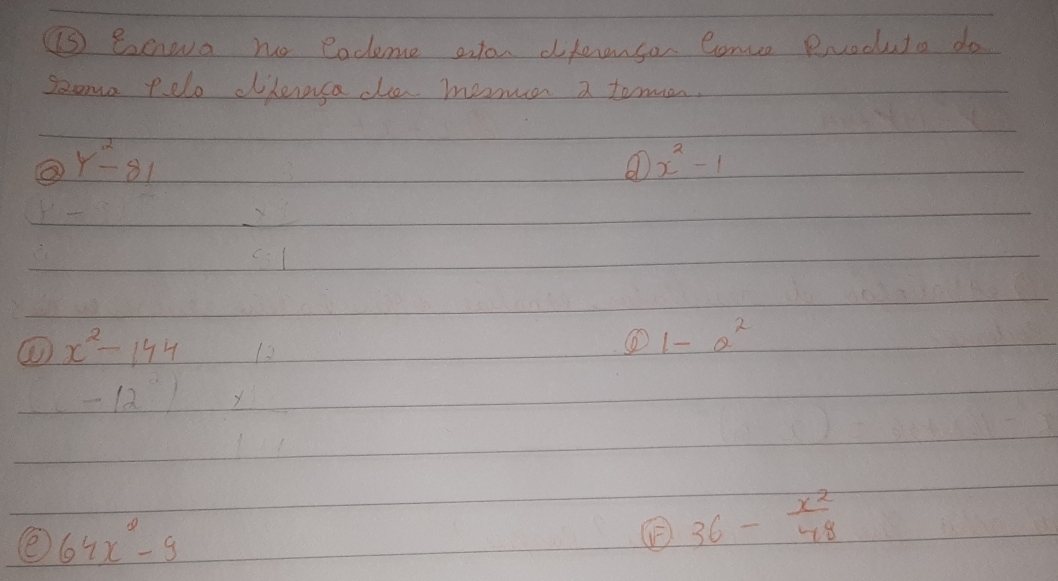 15) Escreva no caderno estas diferenças como produto da
soma pelo diferença dos mesmos 2 termos.
a) Y² - 81
d) x² - 1
x² - 144
12
- 12
x
1 - a²
e) 64x² - 9
F) 36 - x²/48